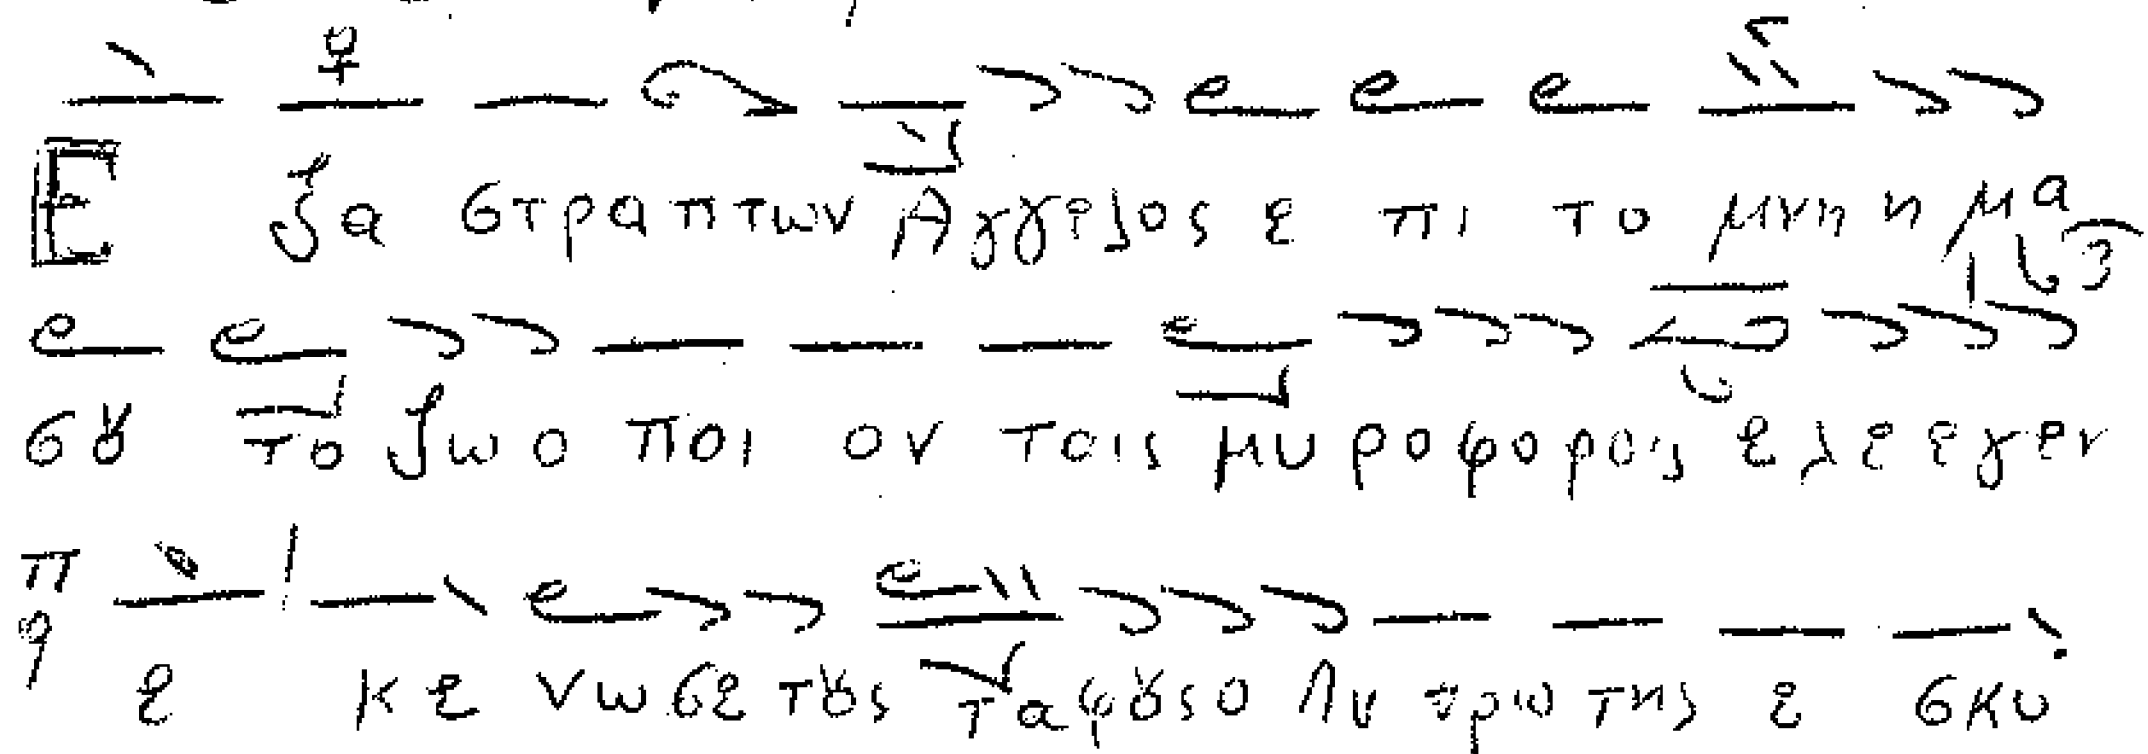 Ε ξα στραπτων Αγγελος ε πι το μνη η μα
σȣ το ζωο ποι ον ταις μυ ροφοροις ε λεεγεν
ε κε νωσε τȣς ταφȣς ο λυ τρω της ε σκυ